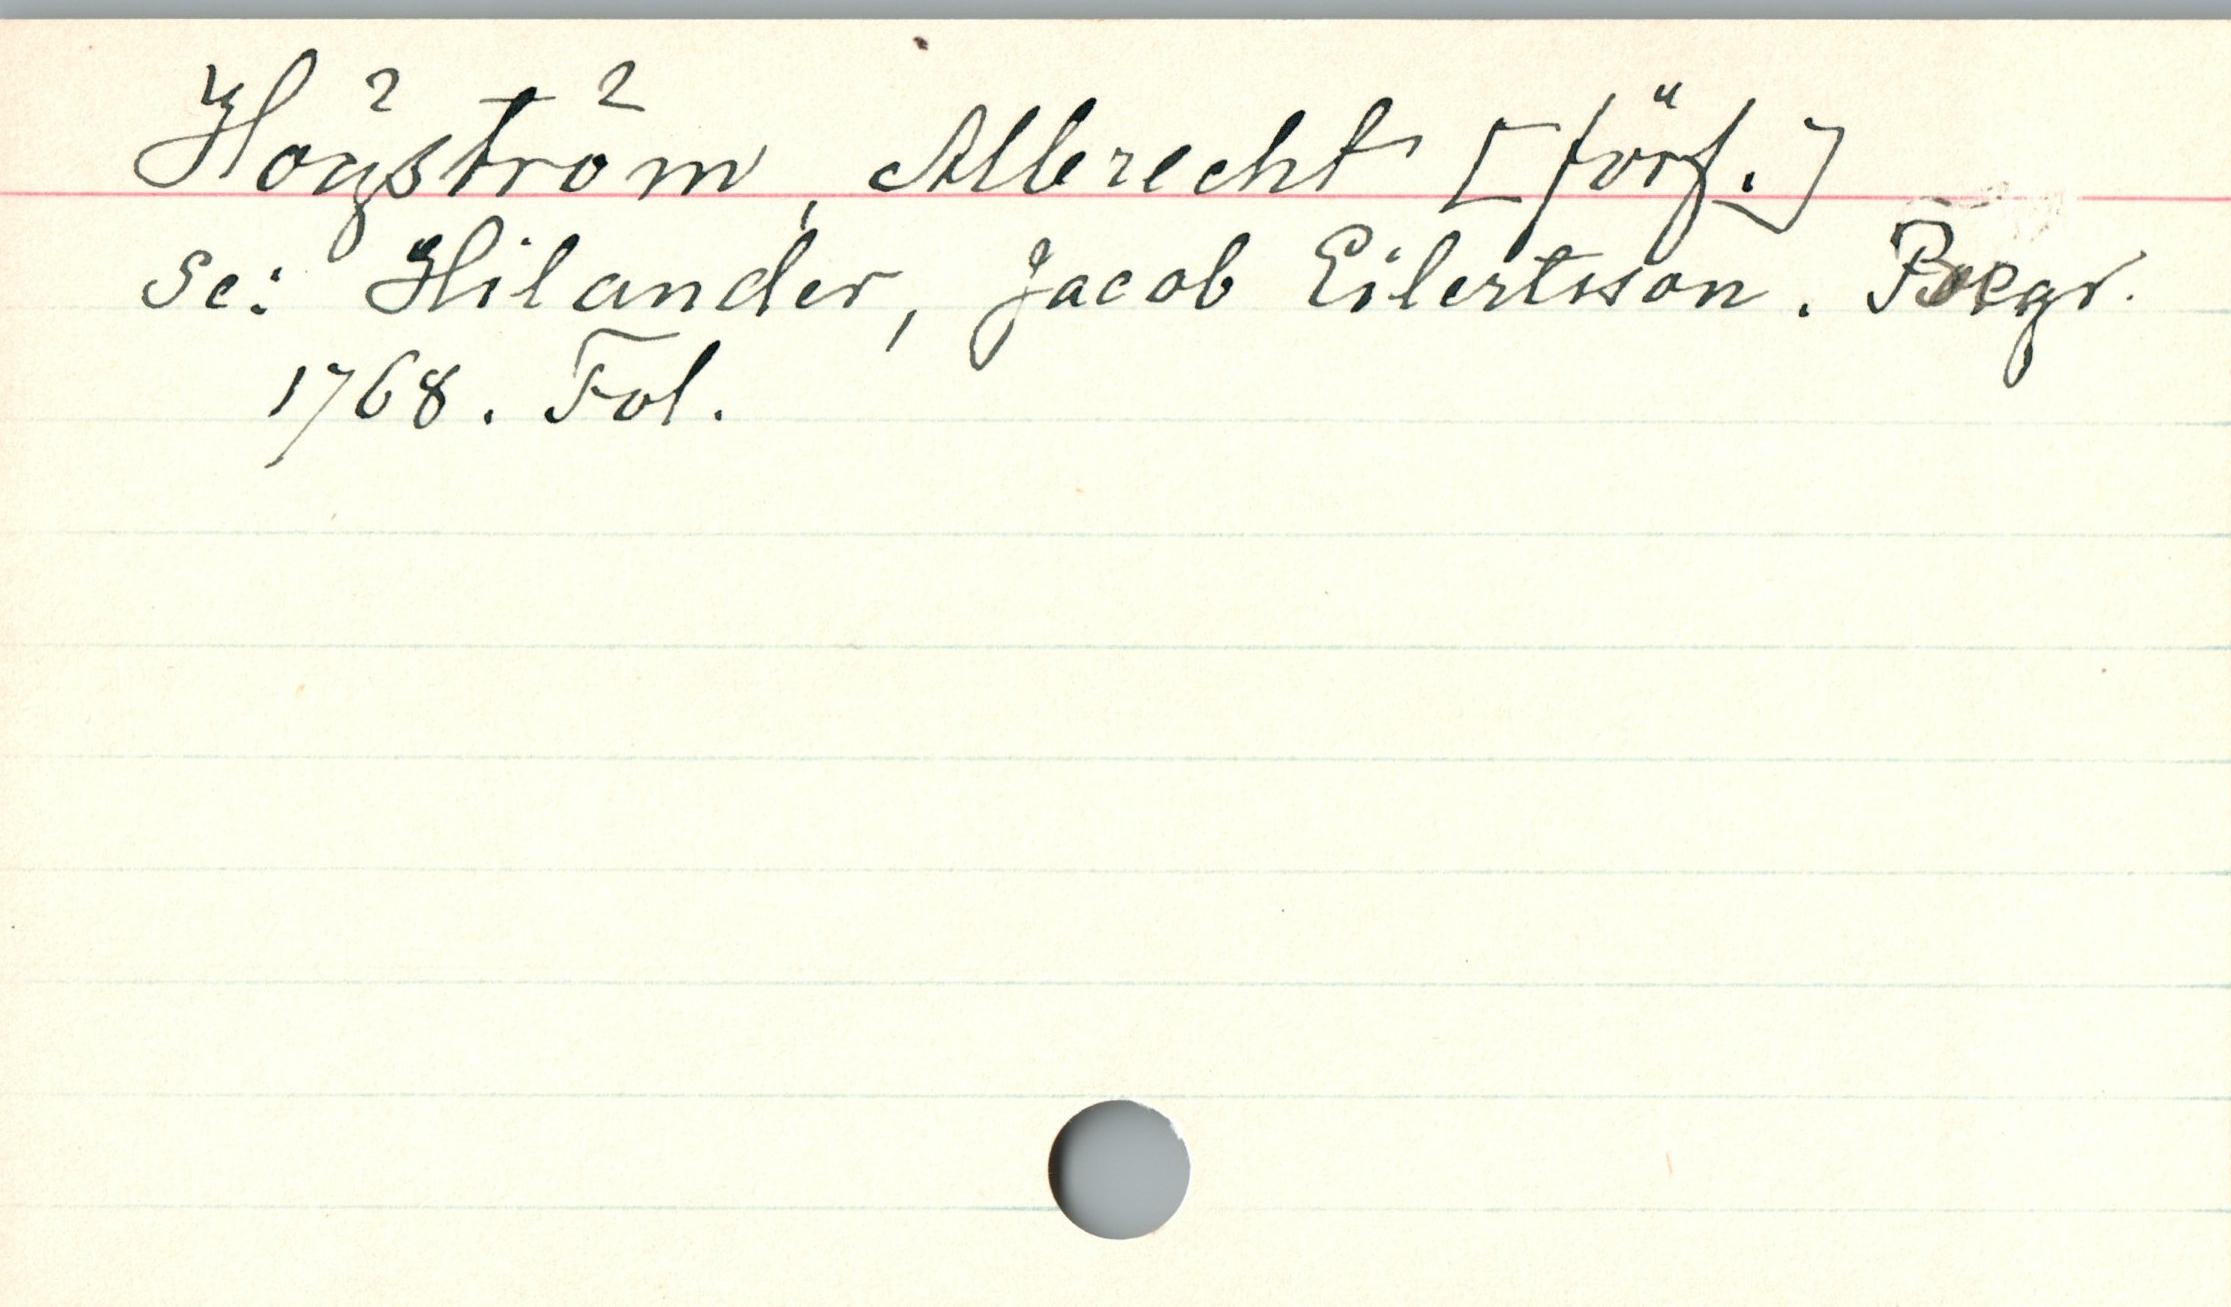 Högström, Albrecht [förf.]
se: Hilander, Jacob Eilertsson. Begr.
1768. Fol.